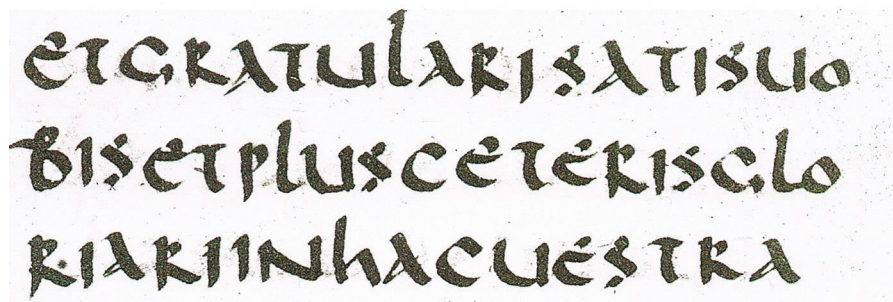 ETGRATULARISATISUO
BISETPLUSCETERISGLO
RIARIINHACUESTRA